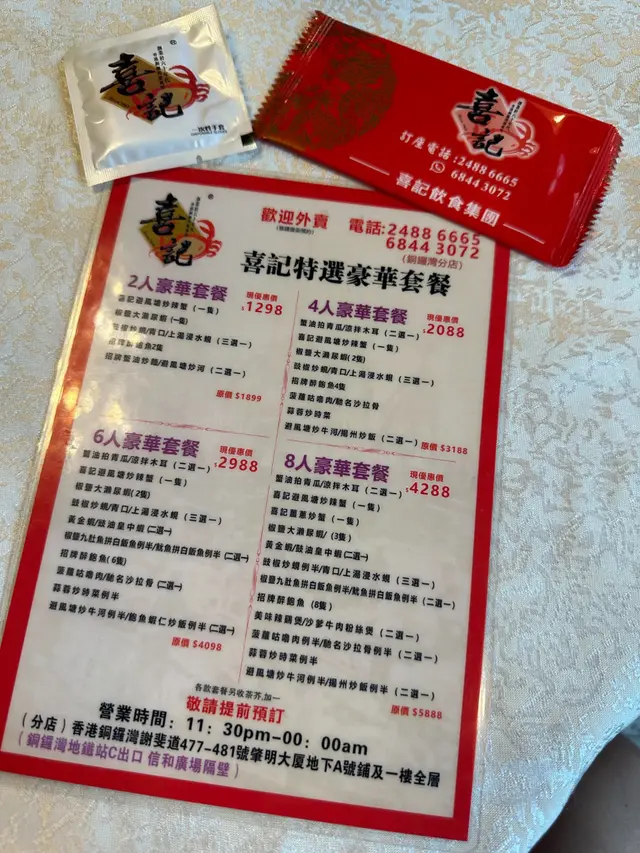 喜記
一次性手套
喜記
訂座電話:2488 6665
6844 3072
喜記飲食集團
喜記
歡迎外賣
電話:2488 6665
6844 3072
(銅鑼灣分店)
喜記特選豪華套餐
2人豪華套餐
現優惠價
$1298
喜記避風塘炒辣蟹（一隻）
椒鹽大瀨尿蝦（一隻）
豉椒炒蜆/青口/上湯浸水蜆（三選一）
招牌醉鮑魚2隻
招牌蟹油炒麵/避風塘炒河（二選一）
原價 $1899
4人豪華套餐
現優惠價
$2088
蟹油拍青瓜/涼拌木耳（二選一）
喜記避風塘炒辣蟹（一隻）
椒鹽大瀨尿蝦(2隻)
豉椒炒蜆/青口/上湯浸水蜆（三選一）
招牌醉鮑魚4隻
菠蘿咕嚕肉/馳名沙拉骨
蒜蓉炒時菜
避風塘炒牛河/揚州炒飯（二選一）
原價 $3188
6人豪華套餐
現優惠價
$2988
蟹油拍青瓜/涼拌木耳（二選一）
喜記避風塘炒辣蟹（一隻）
椒鹽大瀨尿蝦(2隻)
豉椒炒蜆/青口/上湯浸水蜆（三選一）
黃金蝦/豉油皇中蝦(二選一)
椒鹽九肚魚拼白飯魚例半/魷魚拼白飯魚例半(二選一)
招牌醉鮑魚(6隻)
菠蘿咕嚕肉/馳名沙拉骨(二選一)
蒜蓉炒時菜例半
避風塘炒牛河例半/鮑魚蝦仁炒飯例半(二選一)
原價 $4098
8人豪華套餐
現優惠價
$4288
蟹油拍青瓜/涼拌木耳（二選一）
喜記避風塘炒辣蟹（一隻）
喜記薑蔥炒蟹（一隻）
椒鹽大瀨尿蝦/（3隻）
黃金蝦/豉油皇中蝦(二選一)
豉椒炒蜆例半/青口/上湯浸水蜆（三選一）
椒鹽九肚魚拼白飯魚例半/魷魚拼白飯魚例半（二選一）
招牌醉鮑魚（8隻）
美味辣鷄煲/沙爹牛肉粉絲煲（二選一）
菠蘿咕嚕肉例半/馳名沙拉骨例半（二選一）
蒜蓉炒時菜例半
避風塘炒牛河例半/揚州炒飯例半（二選一）
原價 $5888
各款套餐另收茶芥,加一
敬請提前預訂
營業時間：11：30pm-00：00am
（分店）香港銅鑼灣謝斐道477-481號肇明大厦地下A號鋪及一樓全層
（銅鑼灣地鐵站C出口 信和廣場隔壁）